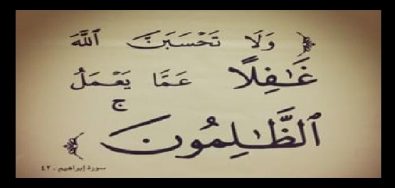 ﴿ وَلَا تَحْسَبَنَّ ٱللَّهَ
غَـٰفِلًا عَمَّا يَعْمَلُ
ٱلظَّـٰلِمُونَ ۚ ﴾
سورة إبراهيم - ٤٢